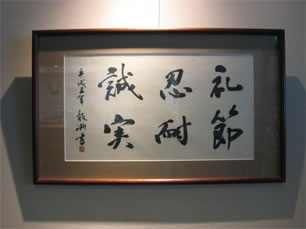 礼節
忍耐
誠実
平成五年 龍洲書